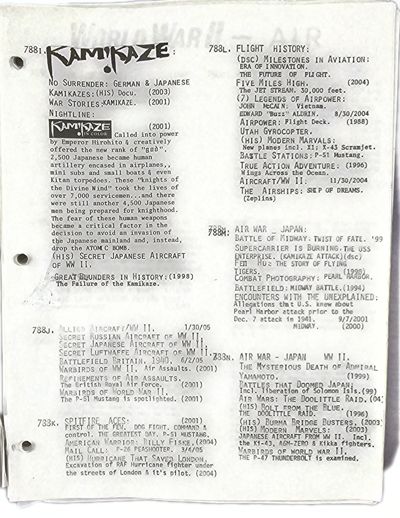 WORLD WAR II - AIR
788I. KAMIKAZE:
NO SURRENDER: GERMAN & JAPANESE
KAMIKAZES: (HIS) DOCU. (2003)
WAR STORIES: KAMIKAZE. (2001)
NIGHTLINE:
KAMIKAZE IN COLOR (2001)
Called into power
by Emperor Hirohito & creatively
offered the new rank of
2,500 Japanese became human
artillery encased in airplanes,,
mini subs and small boats & even
Kitan torpedoes. These "Knights of
the Divine Wind" took the lives of
over 7,000 servicemen...and there
were still another 4,500 Japanese
men being prepared for knighthood.
The fear of these human weapons
became a critical factor in the
decision to avoid an invasion of
the Japanese mainland and, instead,
drop the ATOMIC BOMB.
(HIS) SECRET JAPANESE AIRCRAFT
OF WW II.
GREAT BLUNDERS IN HISTORY:(1998)
The Failure of the Kamikaze.
788J. ALLIED AIRCRAFT/WW II. 1/30/05
SECRET RUSSIAN AIRCRAFT OF WW II.
SECRET JAPANESE AIRCRAFT OF WW II.
SECRET LUFTWAFFE AIRCRAFT OF WW II.
BATTLEFIELD BRITAIN, 1940. 6/2/05
WARBIRDS OF WW II. Air Assaults. (2001)
REFINEMENTS OF AIR ASSAULTS.
The British Royal Air Force. (2001)
WARBIRDS OF WORLD WAR II.
The P-51 Mustang is spotlighted. (2001)
788K. SPITFIRE ACES: (2001)
FIRST OF THE FEW. DOG FIGHT. COMMAND &
CONTROL. THE GREATEST DAY. P-51 MUSTANG.
AMERICAN WARRIOR: BILLY FISKE. (2004)
MAIL CALL: P-26 PEASHOOTER. 3/4/05
(HIS) HURRICANE THAT SAVED LONDON.
Excavation of RAF Hurricane fighter under
the streets of London & it's pilot. (2004)
788L. FLIGHT HISTORY:
(DSC) MILESTONES IN AVIATION:
ERA OF INNOVATION.
THE FUTURE OF FLIGHT.
FIVE MILES HIGH. (2004)
The JET STREAM. 30,000 feet.
(7) LEGENDS OF AIRPOWER:
JOHN McCAIN. Vietnam.
EDWARD "BUZZ" ALDRIN. 8/30/2004
AIRPOWER: Flight Deck. (1988)
UTAH GYROCOPTER.
(HIS) MODERN MARVELS:
New planes incl. X1; X-43 Scramjet.
BATTLE STATIONS: P-51 Mustang.
TRUE ACTION ADVENTURE. (1996)
Wings Across the Ocean.
AIRCRAFT/WW II. 11/30/2004
THE AIRSHIPS: SHIP OF DREAMS.
(Zeplins)
788M: AIR WAR _ JAPAN:
BATTLE OF MIDWAY: TWIST OF FATE. '99
SUPERCARRIER IS BURNING: THE USS
ENTERPRISE. (KAMIKAZE ATTACK)(DSC)
THE STORY OF FLYING
TIGERS. (1998)
COMBAT PHOTOGRAPHY: PEARL HARBOR.
BATTLEFIELD: MIDWAY BATTLE.(1994)
ENCOUNTERS WITH THE UNEXPLAINED:
Allegations that U.S. knew about
Pearl Harbor attack prior to the
Dec. 7 attack in 1941. 9/7/2001
MIDWAY. (2000)
788N. AIR WAR - JAPAN WW II.
THE MYSTERIOUS DEATH OF ADMIRAL
YAMAMOTO. (1999)
BATTLES THAT DOOMED JAPAN:
Incl. liberation of Solomon Isls.(99)
AIR WARS: THE DOOLITTLE RAID.(04)
(HIS) BOLT FROM THE BLUE.
THE DOOLITTLE RAID. (1996)
(HIS) BURMA BRIDGE BUSTERS.(2003)
(HIS) MODERN MARVELS: (2003)
JAPANESE AIRCRAFT FROM WW II. Incl.
the Ki-43, A6M-ZERO & Kikka fighters.
WARBIRDS OF WORLD WAR II.
THE P-47 THUNDERBOLT is examined.